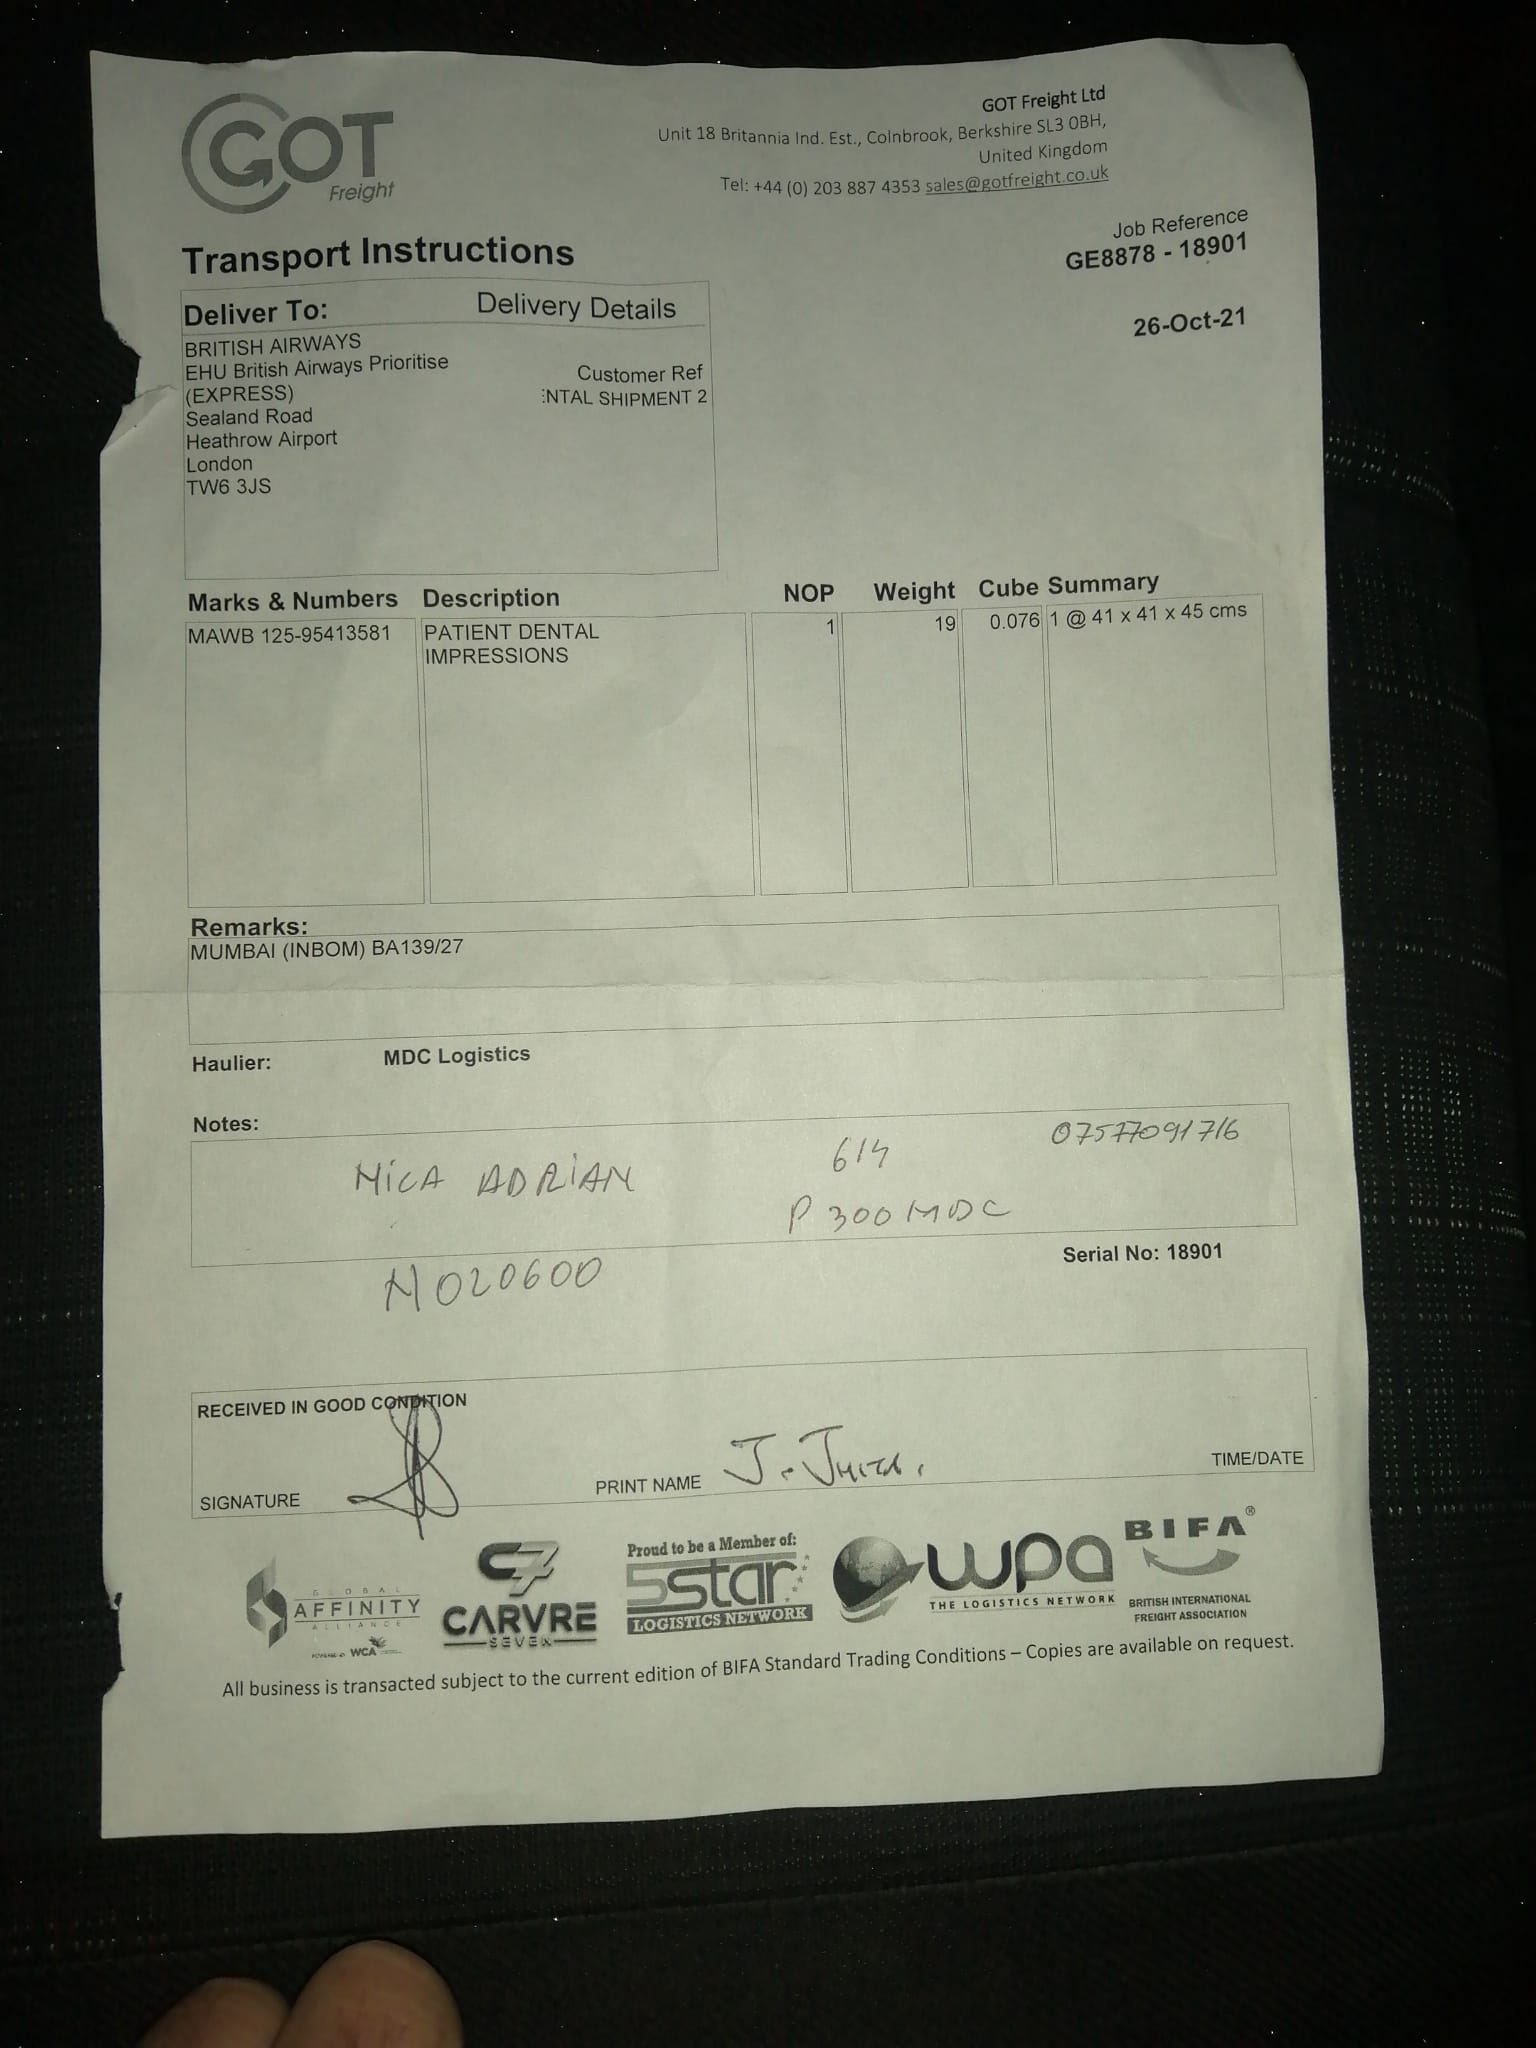 GOT
Freight
GOT Freight Ltd
Unit 18 Britannia Ind. Est., Colnbrook, Berkshire SL3 0BH,
United Kingdom
Tel: +44 (0) 203 887 4353 sales@gotfreight.co.uk
Job Reference
GE8878 - 18901
26-Oct-21
Transport Instructions
Deliver To: Delivery Details
BRITISH AIRWAYS
EHU British Airways Prioritise
(EXPRESS)
Sealand Road
Heathrow Airport
London
TW6 3JS
Customer Ref
NTAL SHIPMENT 2
Marks & Numbers Description NOP Weight Cube Summary
MAWB 125-95413581 PATIENT DENTAL 1 19 0.076 1 @ 41 x 41 x 45 cms
IMPRESSIONS
Remarks:
MUMBAI (INBOM) BA139/27
Haulier: MDC Logistics
Notes:
MICA ADRIAN 614 07577091716
P300MDC
Serial No: 18901
N020600
RECEIVED IN GOOD CONDITION
SIGNATURE PRINT NAME J. TIME/DATE
GLOBAL
AFFINITY
ALLIANCE
POWERED BY WCA
C7
CARVRE
SEVEN
Proud to be a Member of:
5star
LOGISTICS NETWORK
wpa
THE LOGISTICS NETWORK
BIFA®
BRITISH INTERNATIONAL
FREIGHT ASSOCIATION
All business is transacted subject to the current edition of BIFA Standard Trading Conditions – Copies are available on request.